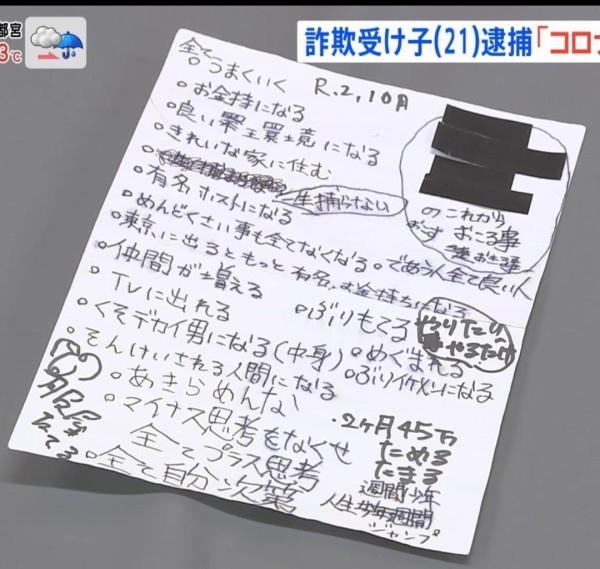 都宮
3℃
詐欺受け子(21)逮捕「コロナ
全て
R.2,10月
○うまくいく
○お金持になる
○良い環境になる
○きれいな家に住む
○有名ホストになる
一生捕らない
のこれから
おこる事
○めんどくさい事も全てなくなる
○であう人全て良い人
○東京に出るともっと有名、お金持ちになる
○仲間が増える
○ぶりもてる
○TVに出れる
やりたい
やるだけ
○くそデカイ男になる(中身)
○めぐまれる
○そんけいされる人間になる
○ぶりイケメンになる
○あきらめんな
○マイナス思考をなくせ
全てプラス思考
○全て自分次第
・2ヶ月45万
ためる
たまる
週間少年
人生
週間
ジャンプ